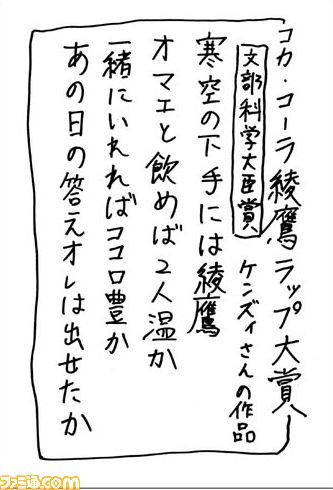 コカ・コーラ綾鷹ラップ大賞
文部科学大臣賞
ケンズィさんの作品
寒空の下手には綾鷹
オマエと飲めば2人温か
一緒にいれればココロ豊か
あの日の答えオレは出せたか
ファミ通.com